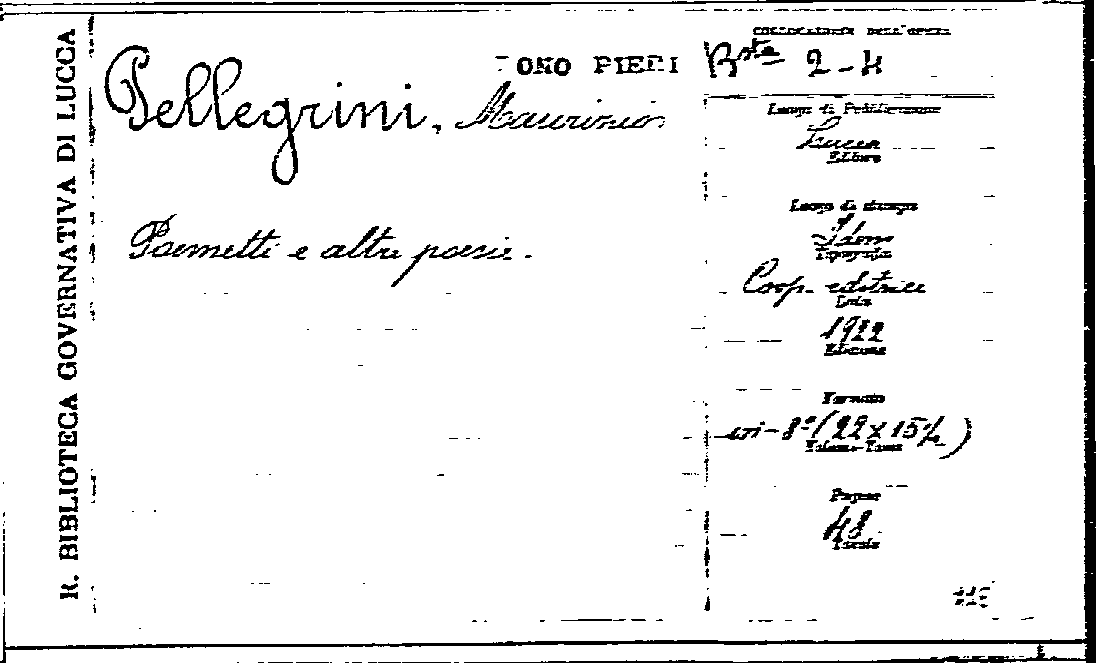 R. BIBLIOTECA GOVERNATIVA DI LUCCA
ONO PIERI
COLLOCAZIONE DELL'OPERA
Bsta 2-4
Pellegrini, Maurinio
Poemetti e altre poesie.
Luogo di Pubblicazione
Lucca
Editore
Luogo di stampa
Idem
Tipografia
Coop. editrice
Data
1922
Edizione
Formato
in-8° (22 x 15½)
Volume-Tomo
Pagine
48
Tavole